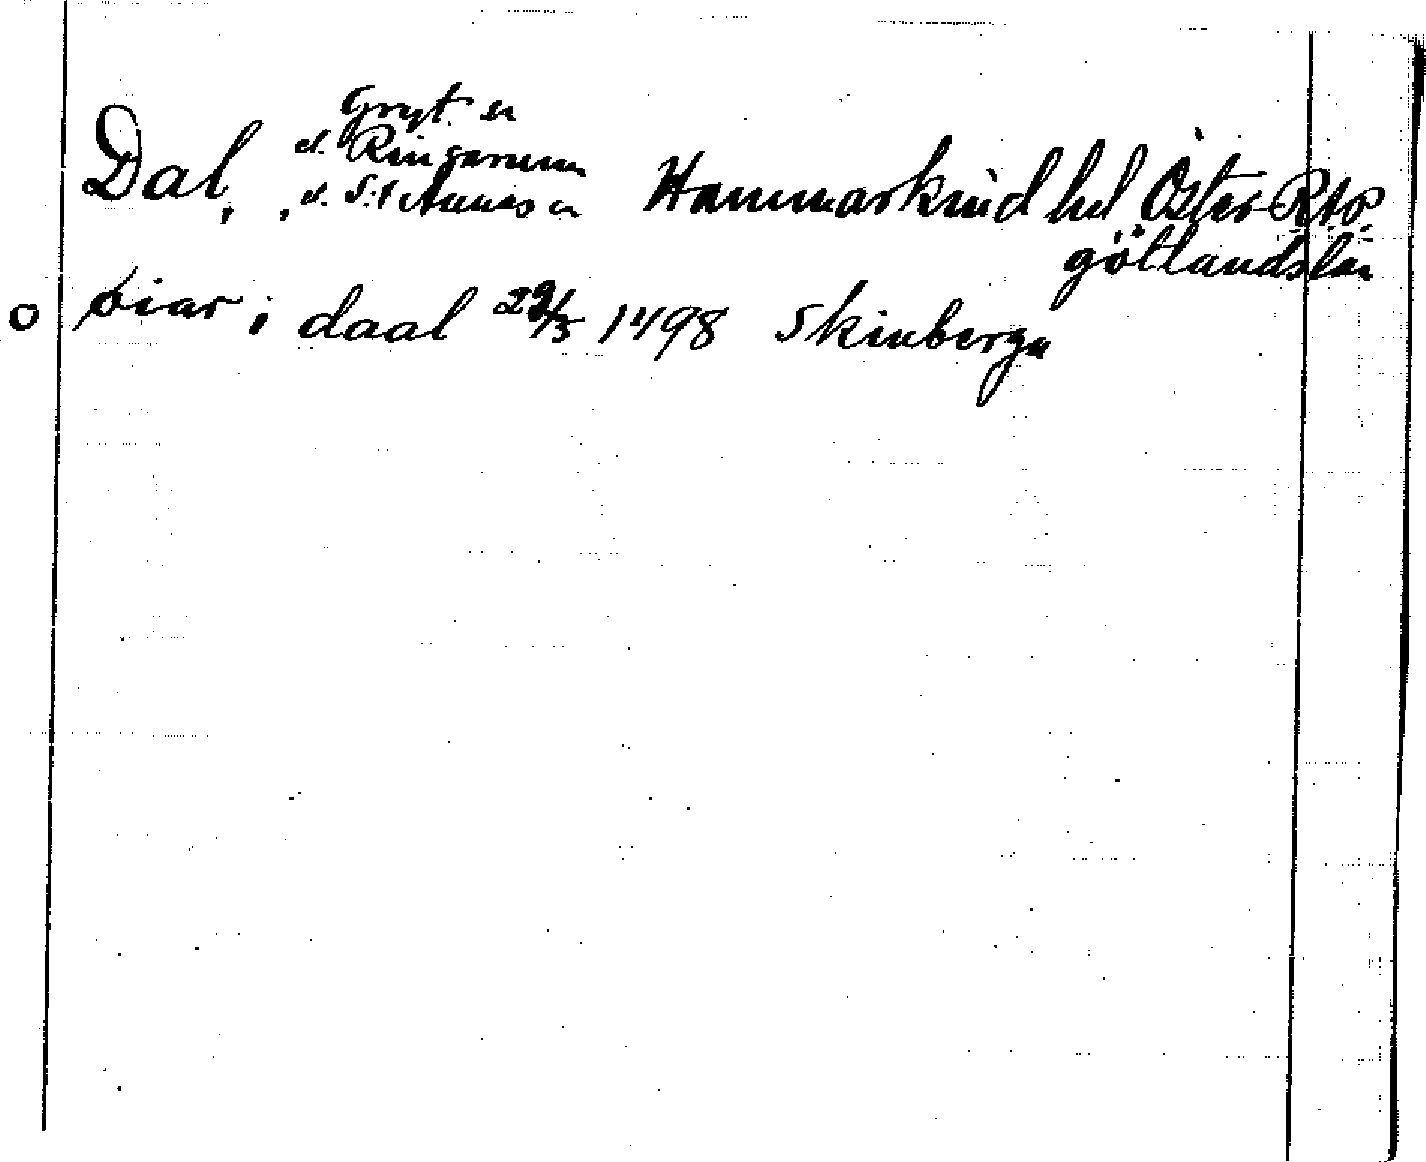 Gryt sn
el. Ringarum
Dal, , el. S:t Annas sn Hammarkind hd Öster-
götlands län
o biar i daal 29/5 1498 Skenberga